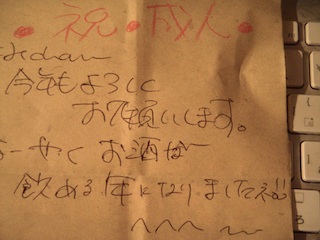 ・祝・成人・
michan
今年もよろしく
お願いします。
よーやくお酒が
飲める年になりましたネ!!